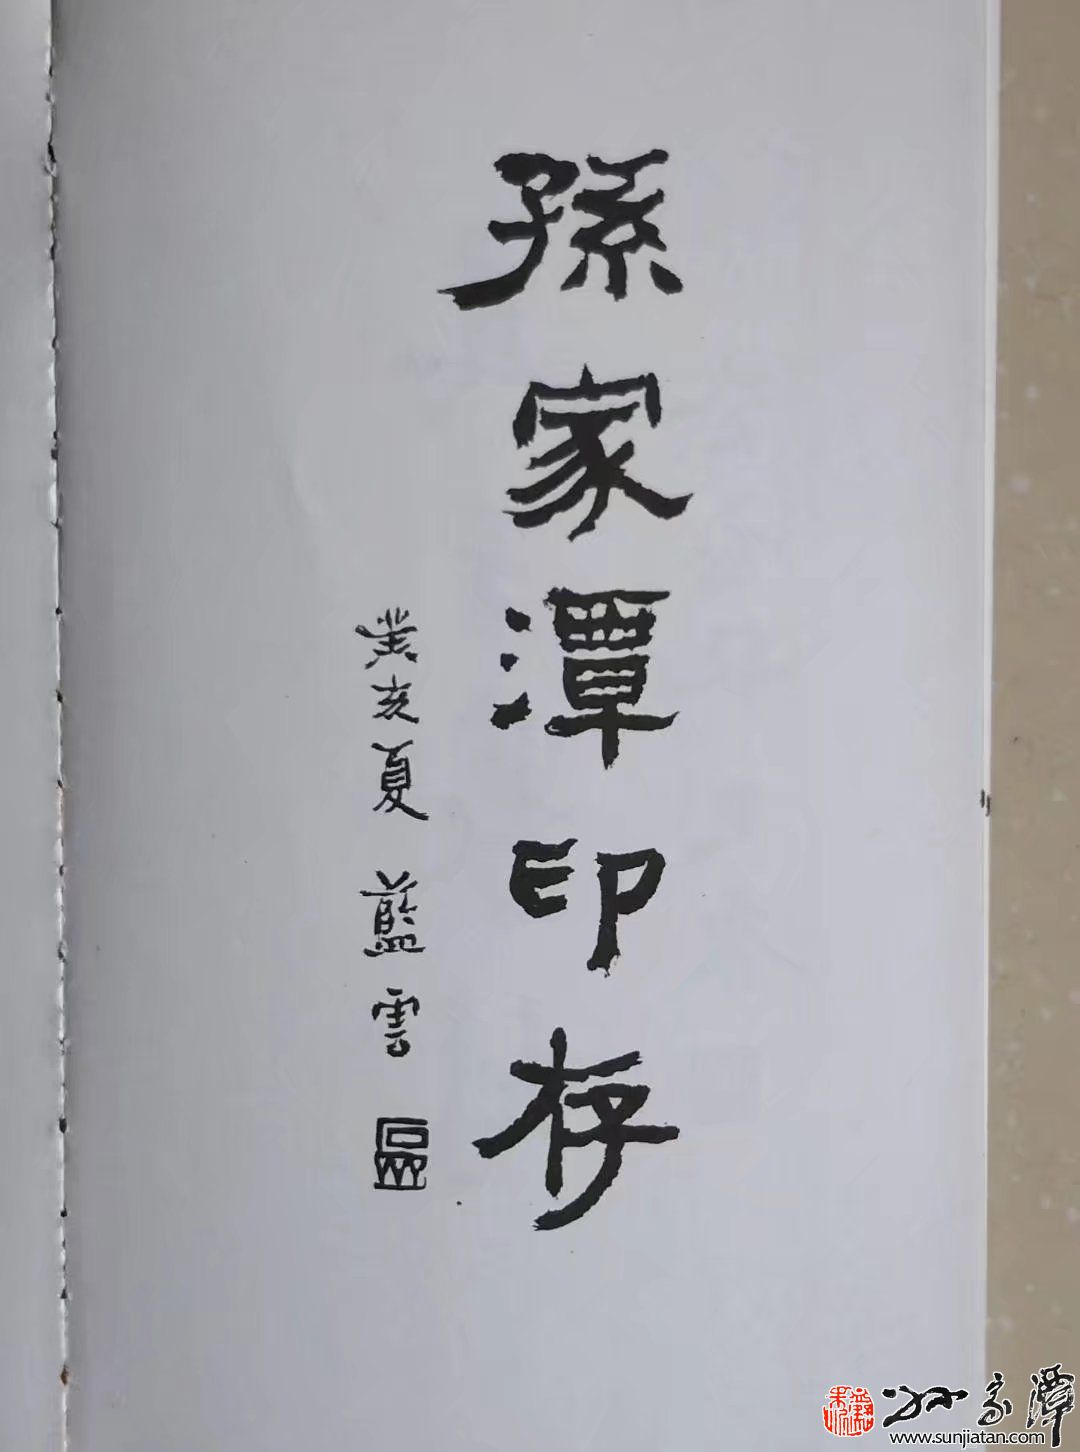 孫家潭印存
癸亥夏 藍雲
孙家潭
www.sunjiatan.com